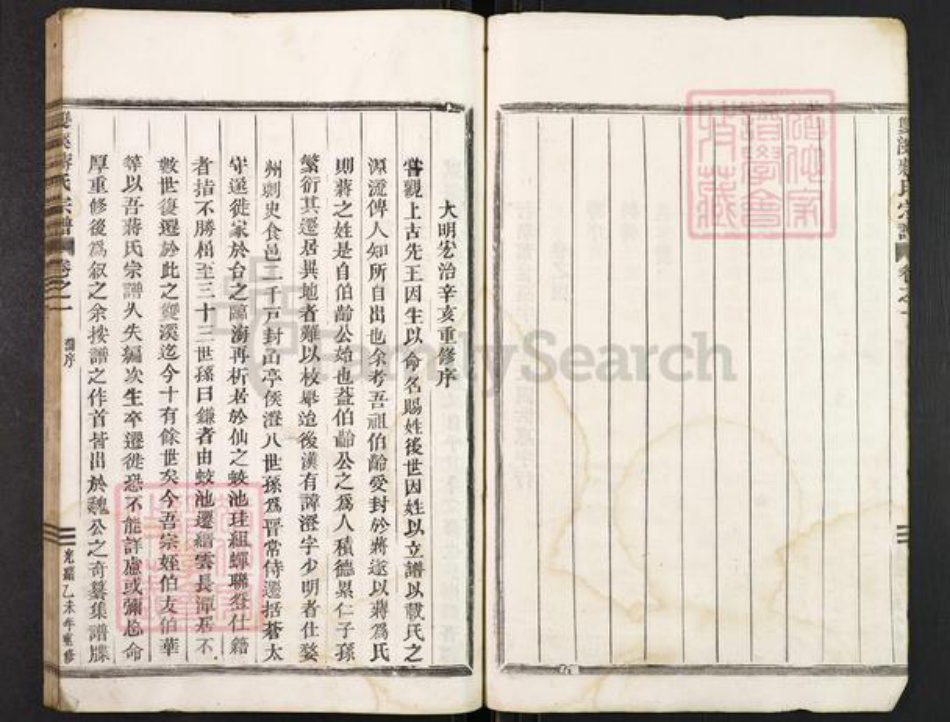 大明宏治辛亥重修序
嘗觀上古先王因生以命名賜姓後世因姓以立譜以載氏之
源流俾人知所自出也余考吾祖伯齡受封於蔣遂以蔣爲氏
則蔣之姓是自伯齡公始也葢伯齡公之爲人積德累仁子孫
繁衍其遷居異地者難以枚舉迨後漢有諱澄字少明者仕婺
州刺史食邑二千戸封凾亭侯澄八世孫爲晋常侍遷括蒼太
守遂徙家於台之臨海再析居於仙之蛟池珪組蟬聯登仕籍
者指不勝屈至三十三世孫曰鎌者由蛟池遷縉雲長潭居不
數世復遷於此之雙溪迄今十有餘世矣今吾宗姪伯友伯華
等以吾蔣氏宗譜久失編次生卒遷徙恐不能詳慮或彌忘命
厚重修後爲叙之余按譜之作首皆出於魏公之奇纂集譜牒
雙溪蔣氏宗譜
卷之一
光緒乙未年重修
雙溪蔣氏宗譜
卷之一
FamilySearch
收藏
譜學會